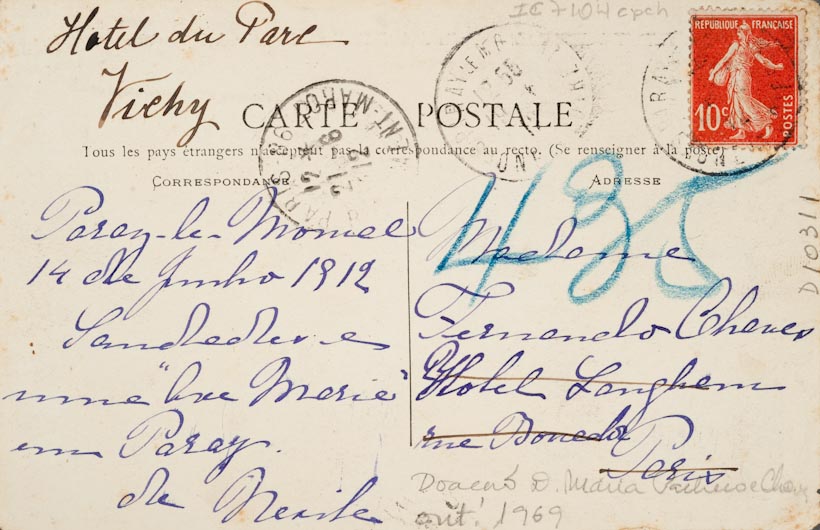 IC7104cpch
Hotel du Parc
Vichy
RÉPUBLIQUE FRANÇAISE
10c
POSTES
CARTE POSTALE
Tous les pays étrangers n'acceptent pas la correspondance au recto. (Se renseigner à la poste)
CORRESPONDANCE
ADRESSE
PARAY
PARIS
Paray-le-Monial
14 de Junho 1912
Saudades e
uma "Ave Marie"
em Paray.
de
435
Madame
Fernando Chaves
Hotel Langham
rue Boccador
Paris
D10311
Doação D. Maria Pacheco e Chaves
out. 1969